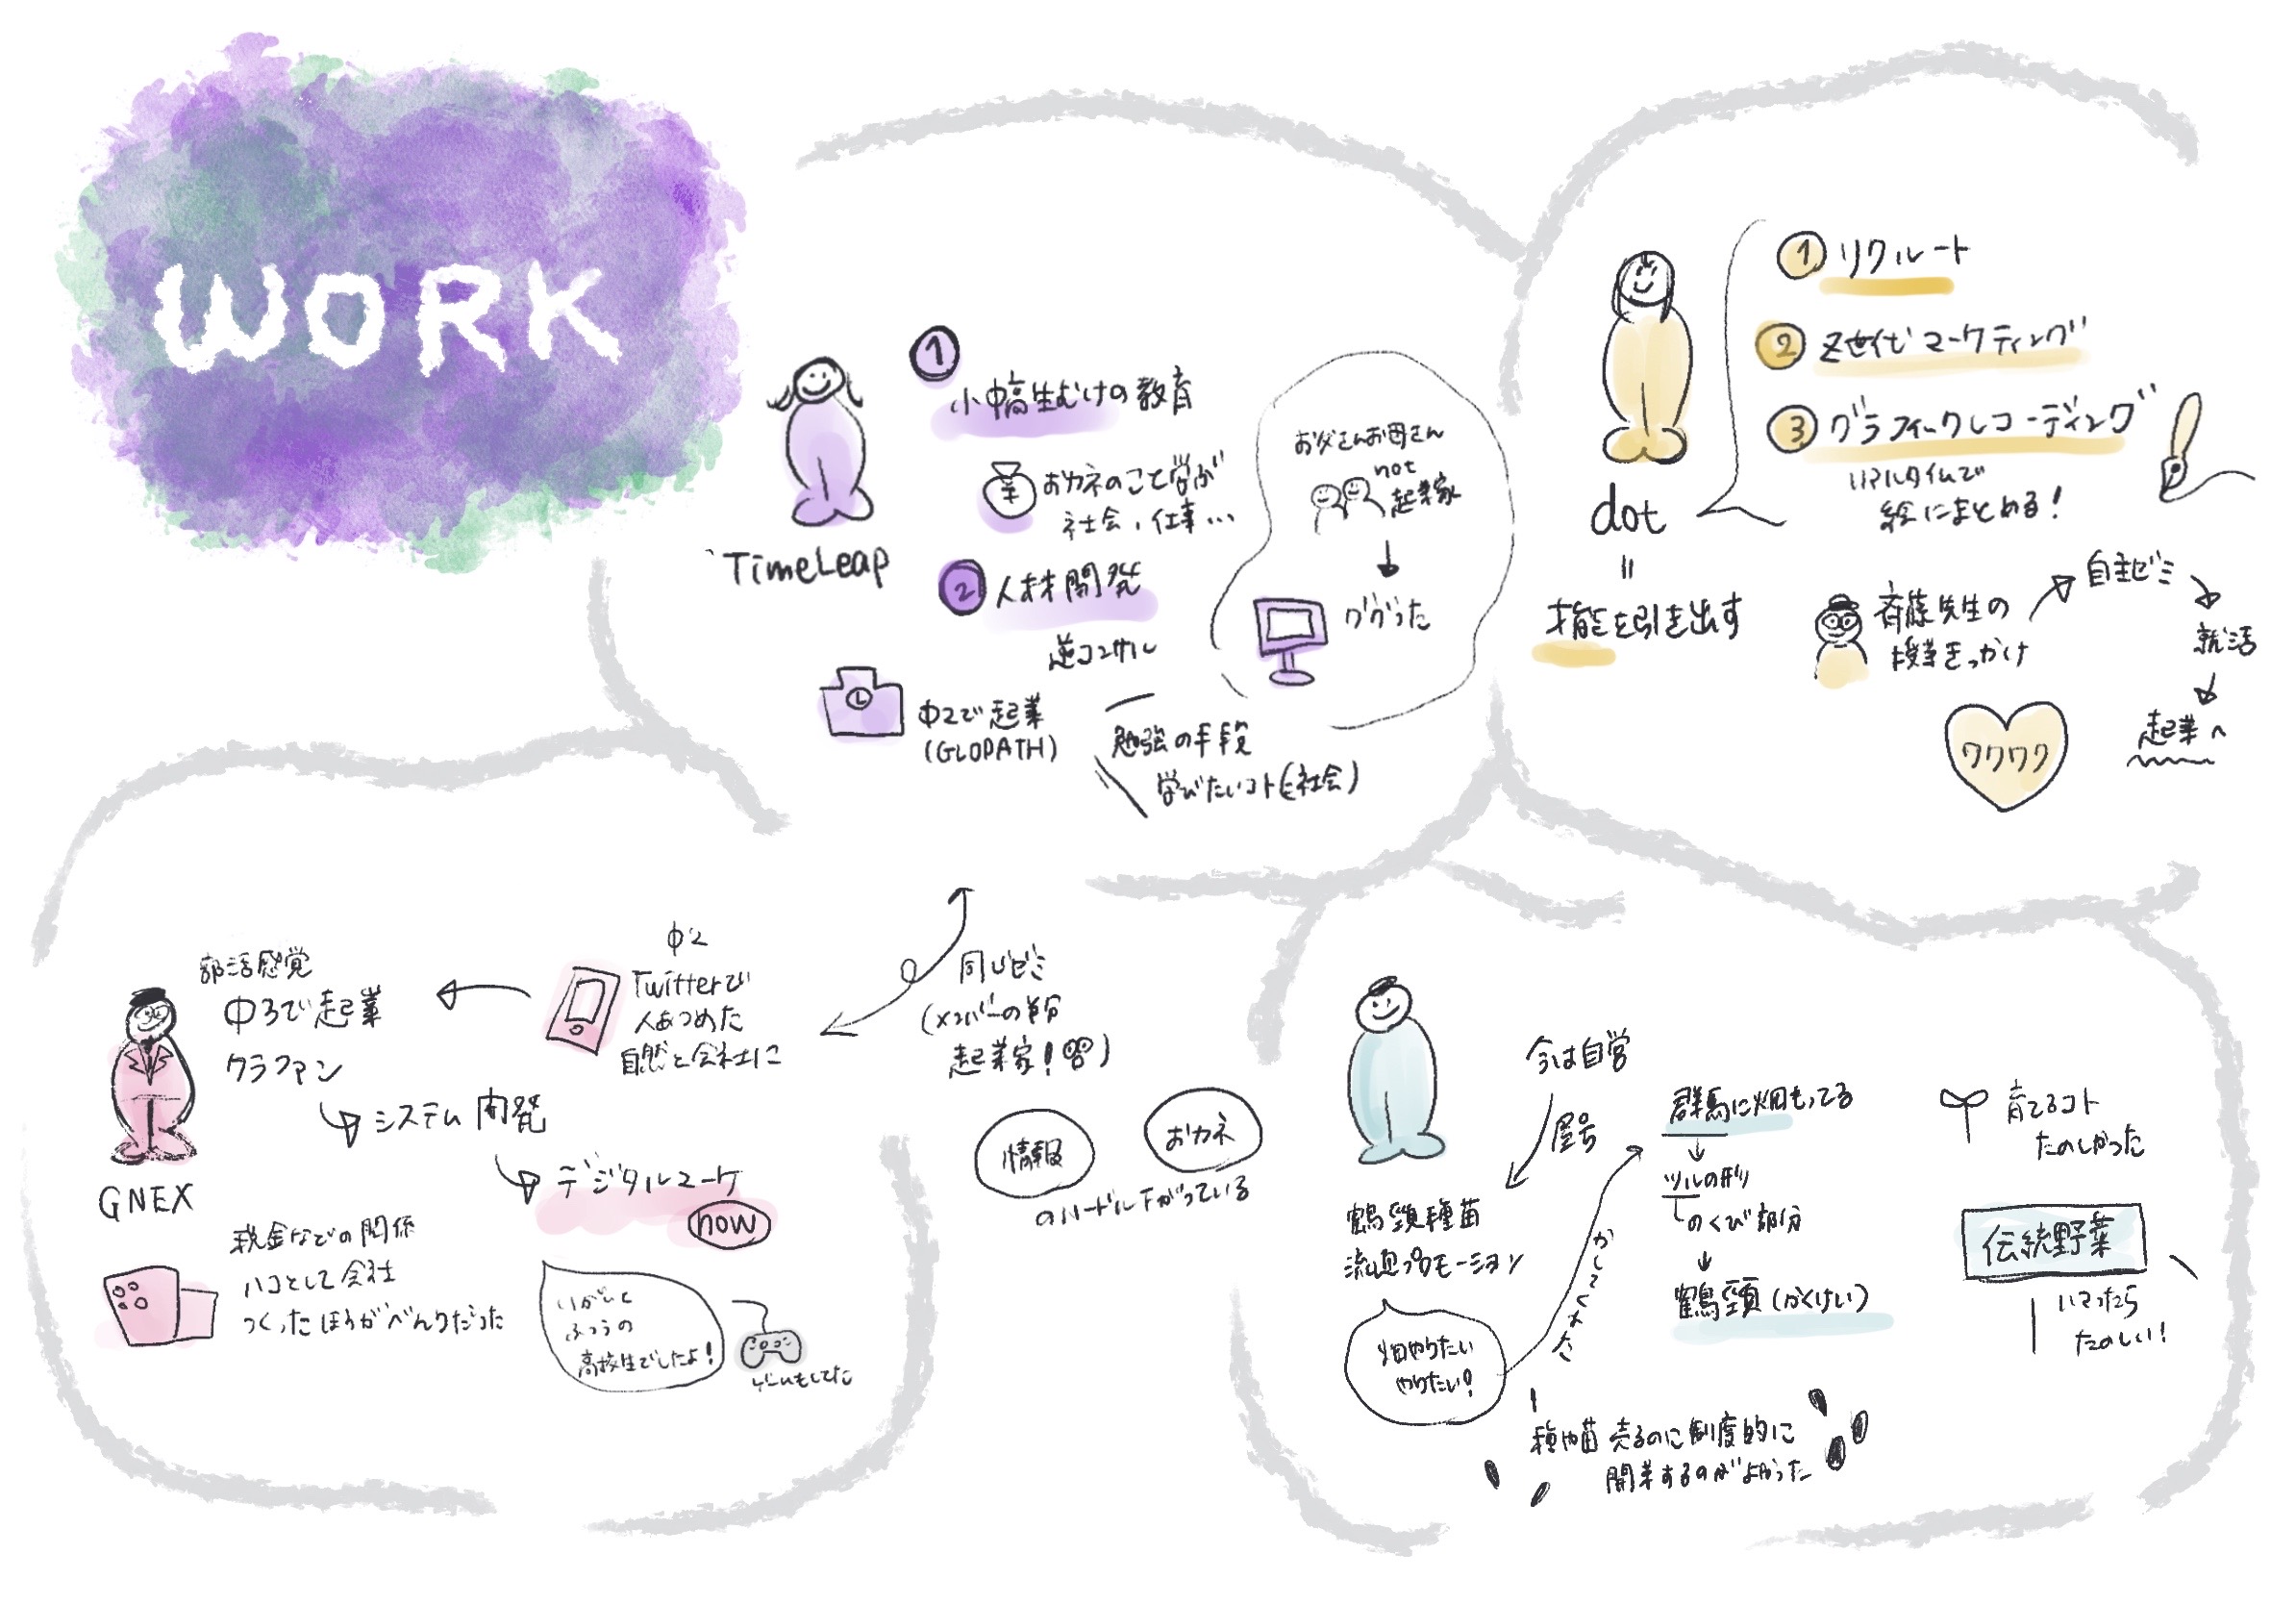 WORK
TimeLeap
1
小中高生むけの教育
¥
おカネのこと学ぶ
社会、仕事…
2
人材開発
逆コンサル
中2で起業
(GLOPATH)
勉強の手段
学びたいコト(社会)
お父さんお母さん
not
起業家
ググった
dot
=
才能を引き出す
1 リクルート
2 Z世代マーケティング
3 グラフィックレコーディング
リアルタイムで
絵にまとめる!
斉藤先生の
授業きっかけ
自主ゼミ
就活
起業へ
ワクワク
GNEX
部活感覚
中3で起業
クラファン
中2
Twitterで
人あつめた
自然と会社に
システム開発
デジタルマーケ
now
税金などの関係
ハコとして会社
つくったほうがべんりだった
いがいと
ふつうの
高校生でしたよ!
ゲームもしてた
同じゼミ
(メンバーの半分
起業家!)
情報
おカネ
のハードル下がっている
今は自営
屋号
鶴頸種苗
流通プロモーション
畑やりたい
やりたい!
かしてくれた
群馬に畑もってる
ツルの形
のくび部分
鶴頸(かくけい)
育てるコト
たのしかった
伝統野菜
ハマったら
たのしい!
種や苗 売るのに制度的に
開業するのがよかった